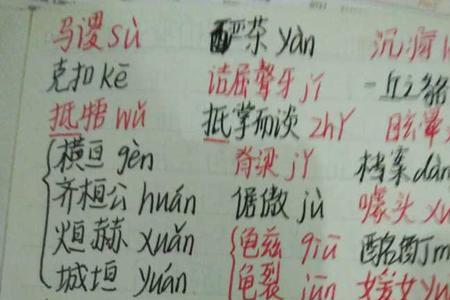 马谡 sù 酽茶 yàn 沉疴
克扣 kē 诘屈聱牙 jí 一丘之貉
抵牾 wǔ 抵掌而谈 zhǐ
横亘 gèn 脊梁 jǐ 档案 dàn
齐桓公 huán 倨傲 jù 噱头 xu
烜赫 xuǎn 龟兹 qiū 酩酊 m
城垣 yuán 龟裂 jūn